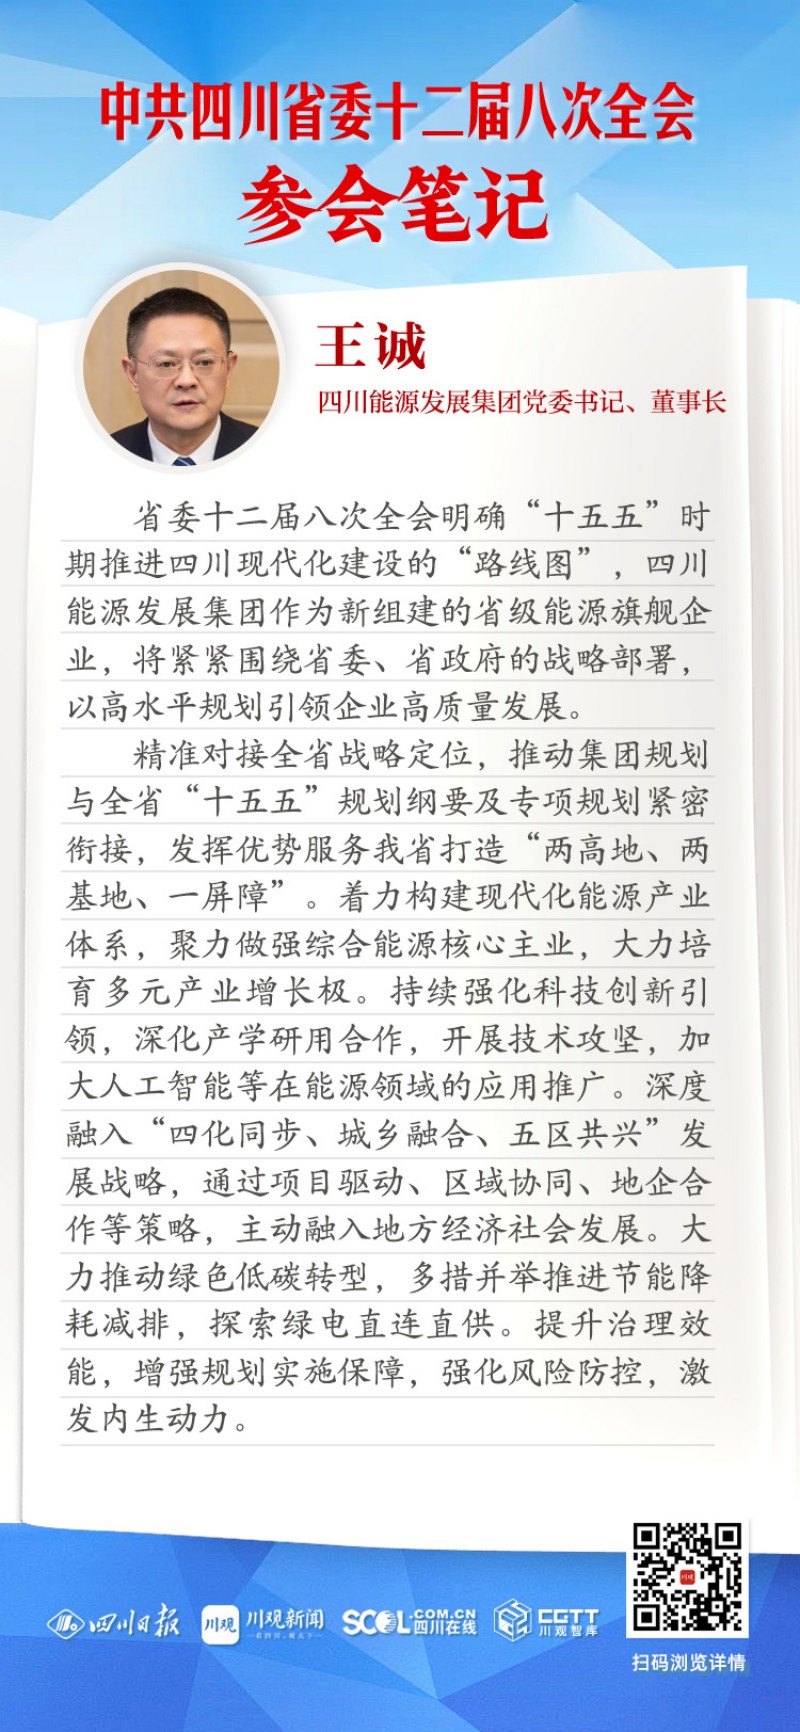 中共四川省委十二届八次全会
参会笔记
王诚
四川能源发展集团党委书记、董事长
省委十二届八次全会明确“十五五”时
期推进四川现代化建设的“路线图”，四川
能源发展集团作为新组建的省级能源旗舰企
业，将紧紧围绕省委、省政府的战略部署，
以高水平规划引领企业高质量发展。
精准对接全省战略定位，推动集团规划
与全省“十五五”规划纲要及专项规划紧密
衔接，发挥优势服务我省打造“两高地、两
基地、一屏障”。着力构建现代化能源产业
体系，聚力做强综合能源核心主业，大力培
育多元产业增长极。持续强化科技创新引
领，深化产学研用合作，开展技术攻坚，加
大人工智能等在能源领域的应用推广。深度
融入“四化同步、城乡融合、五区共兴”发
展战略，通过项目驱动、区域协同、地企合
作等策略，主动融入地方经济社会发展。大
力推动绿色低碳转型，多措并举推进节能降
耗减排，探索绿电直连直供。提升治理效
能，增强规划实施保障，强化风险防控，激
发内生动力。
四川日报
川观 川观新闻
SCOL.COM.CN
四川在线
CGTT
川观智库
川观
扫码浏览详情